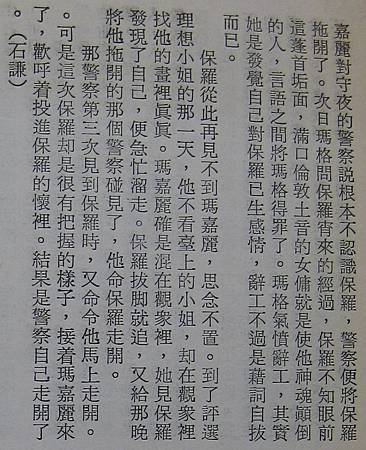 嘉麗對守夜的警察説根本不認識保羅，警察便將保羅
拖開了。次日瑪格問保羅宵來的經過，保羅不知眼前
這蓬首垢面，滿口倫敦土音的女傭就是使他神魂顛倒
的人，言語之間將瑪格得罪了。瑪格氣憤辭工，其實
她是發覺自己對保羅已生感情，辭工不過是藉詞自拔
而已。
保羅從此再見不到瑪嘉麗，思念不置。到了評選
理想小姐的那一天，他不看臺上的小姐，却在觀衆裡
找他的畫裡眞眞。瑪嘉麗確是混在觀衆裡，她見保羅
發現了自己，便急忙溜走。保羅拔脚就追，又給那晚
將他拖開的那個警察碰見了，他命保羅走開。
那警察第三次見到保羅時，又命令他馬上走開。
。可是這次保羅却是很有把握的樣子，接着瑪嘉麗來
了，歡呼着投進保羅的懷裡。結果是警察自己走開了
。（石謙）